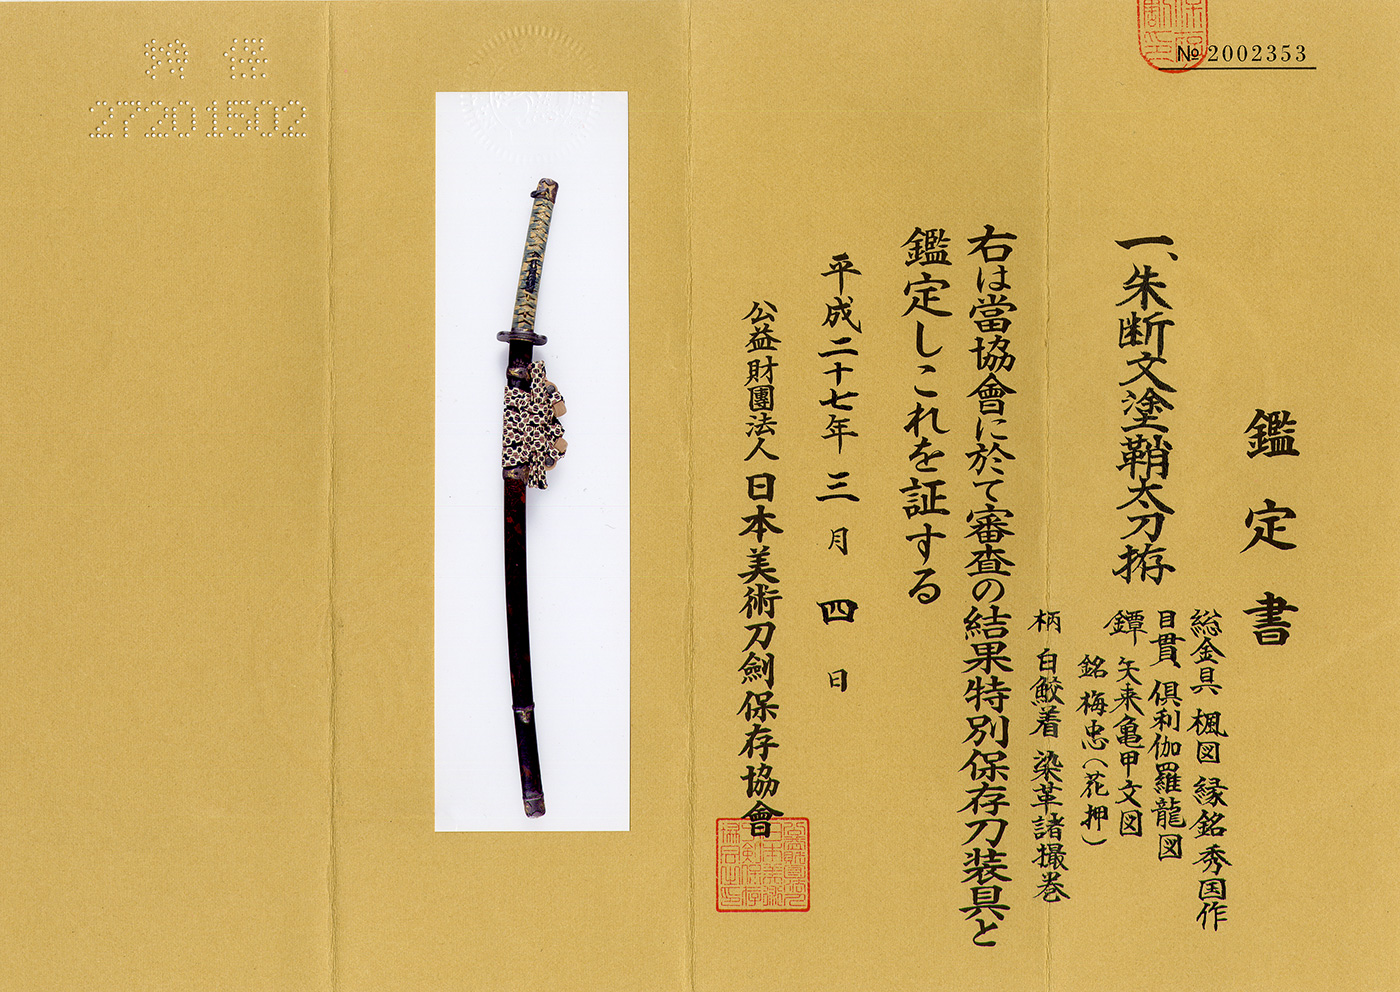 № 2002353
鑑定書
一、朱断文塗鞘太刀拵
総金具 楓図 縁銘 秀国作
目貫 倶利伽羅龍図
鐔 矢来亀甲文図
銘 梅忠(花押)
柄 白鮫着 染革諸撮巻
右は當協會に於て審査の結果特別保存刀装具と
鑑定しこれを証する
平成二十七年三月四日
公益財團法人 日本美術刀劍保存協會
特保
27201502